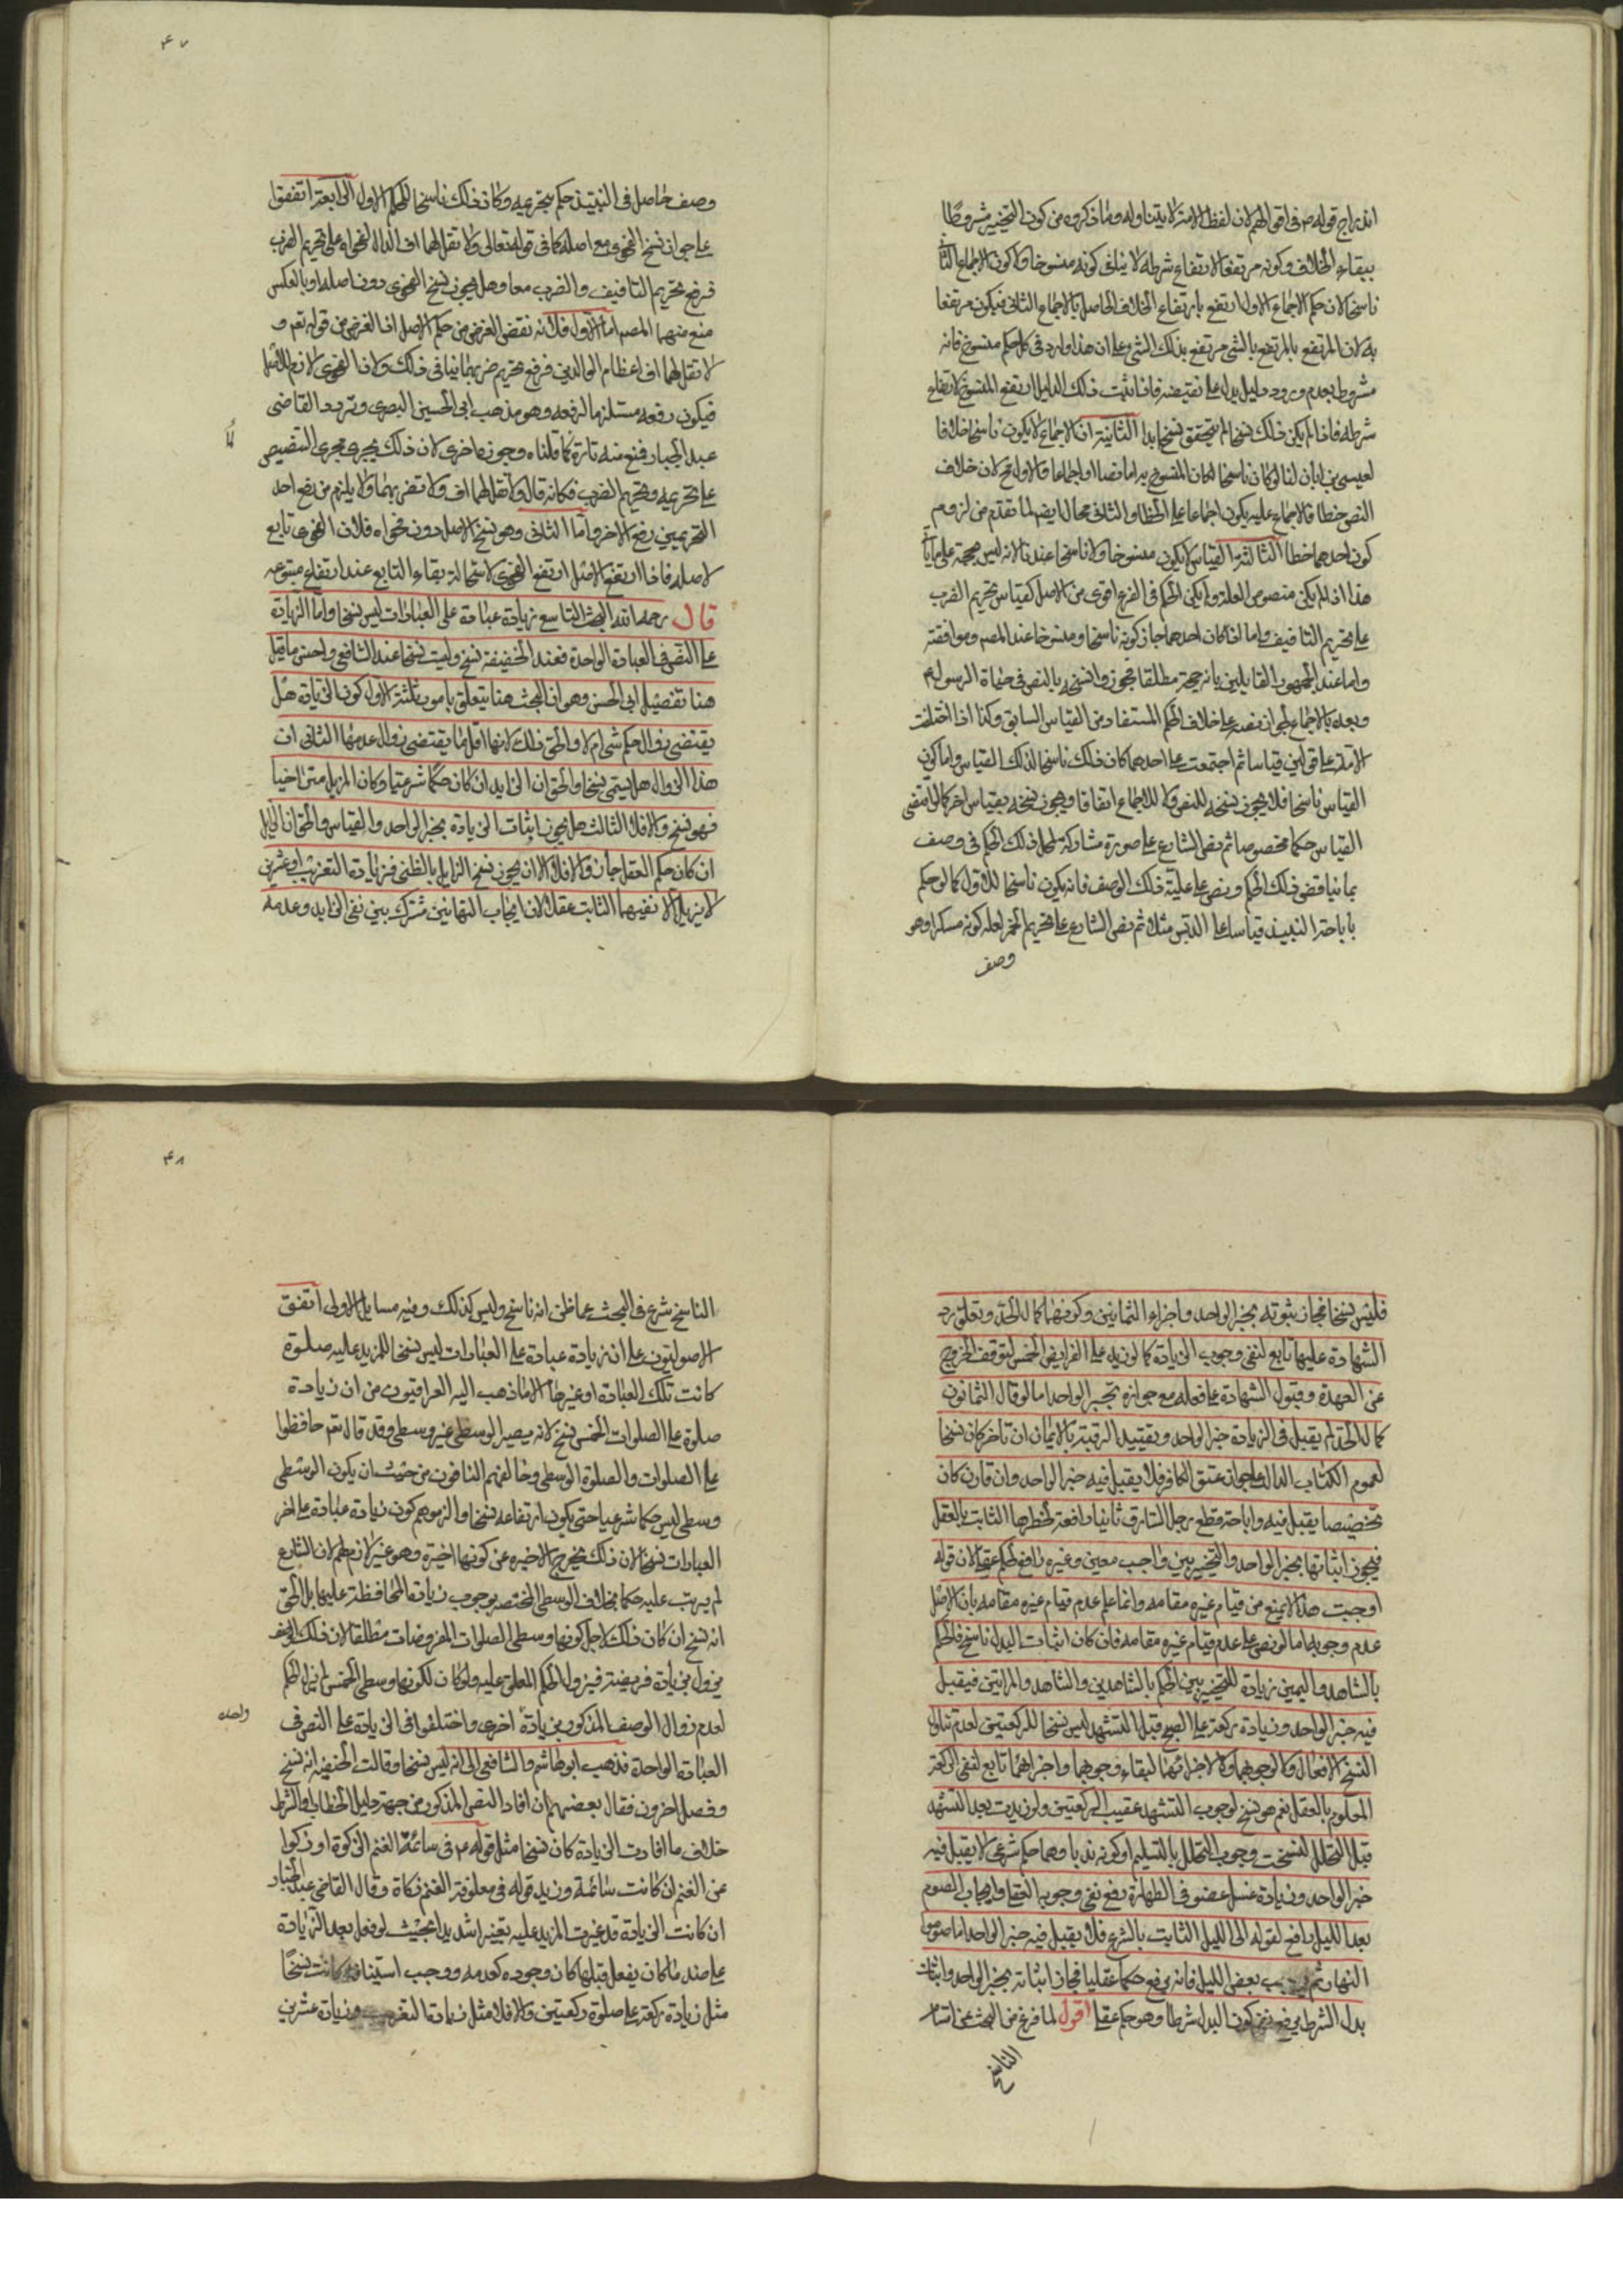 اندراج قوله ص فى اقوالهم لان لفظ الامة لا يتناوله وما ذكروه من كون التخيير مشروطا
ببقاء الخلاف وكونه مرتفعا لارتفاع شرطه لا ينافى كونه منسوخا ولا كون الاجماع الثا
ناسخا لان حكم الاجماع الاول ارتفع بارتفاع الخلاف الحاصل بالاجماع الثانى فيكون مرتفعا
به لان المرتفع بالمرتفع بالشى مرتفع بذلك الشى وعلى ان هذا وارد فى كل حكم منسوخ فانه
مشروط بعدم ورود دليل يدل على نقيضه فاذا ثبت ذلك الدليل ارتفع المنسوخ لارتفاع
شرطه فاذا لم يكن ذلك نسخا لم يتحقق نسخ ابدا الثانية ان الاجماع لا يكون ناسخا خلافا
لعيسى بن ابان لنا لو كان ناسخا لكان المنسوخ به اما نصا او اجماعا والاول مح لان خلاف
النص خطا فالاجماع عليه يكون اجماعا على الخطا والثانى محال ايضا لما تقدم من لزوم
كون احدهما خطا الثالثة القياس لا يكون منسوخا ولا ناسخا عندنا لانه ليس بحجة على ما ياتى
هذا اذا لم يكن منصوص العلة ولم يكن الحكم فى الفرع اقوى من الاصل كقياس تحريم الضرب
على تحريم التافيف واما اذا كان احدهما جاز كونه ناسخا ومنسوخا عند المصم وموافقته
واما عند الجمهور القايلين بانه حجة مطلقا فيجوز نسخه بالنص فى حياة الرسول ع
وبعده بالاجماع لجواز نصه على خلاف الحكم المستفاد من القياس السابق وكذا اذا اختلفت
الامة على قولين قياسا ثم اجتمعت على احدهما كان ذلك ناسخا لذلك القياس واما كون
القياس ناسخا فلا يجوز نسخه للنص ولا للاجماع اتفاقا ويجوز نسخه بقياس اخر كما لو اقتضى
القياس حكما مخصوصا ثم نص الشارع على صورة مشاركة لمحل ذلك الحكم فى وصف
بما يناقض ذلك الحكم ونص على علية ذلك الوصف فانه يكون ناسخا للاول كما لو حكم
باباحة النبيذ قياسا على الدبس مثلا ثم نص الشارع على تحريم الخمر لعلة كونه مسكرا وهو
وصف
وصف حاصل فى النبيذ حكم بتحريمه وكان ذلك ناسخا للحكم الاول الرابعة اتفقوا
على جواز نسخ الفحوى مع اصله كما فى قوله تعالى ولا تقل لهما اف الدال بفحواه على تحريم الضرب
فرفع تحريم التافيف والضرب معا وهل يجوز نسخ الفحوى دون اصله او بالعكس
منع منهما المصم اما الاول فلانه نقض الغرض من حكم الاصل اذ الغرض من قوله تع و
لا تقل لهما اف اعظام الوالدين فرفع تحريم ضربهما ينافى ذلك ولان الفحوى لازم للاصل
فيكون رفعه مستلزما لرفعه وهو مذهب ابى الحسين البصرى وتردد القاضى
عبد الجبار فمنع منه تارة كما قلناه وجوزه اخرى لان ذلك يجرى مجرى التنصيص
على تحريمه وتحريم الضرب فكانه قال ولا تقل لهما اف ولا تضربهما ولا يلزم من رفع احد
التحريمين رفع الاخر واما الثانى وهو نسخ الاصل دون فحواه فلان الفحوى تابع
لاصله فاذا ارتفع الاصل ارتفع الفحوى لاستحالة بقاء التابع عند ارتفاع متبوعه
قال رحمه الله البحث التاسع زيادة عبادة على العبادات ليس نسخا واما الزيادة
على النص فى العبادة الواحدة فعند الحنفية نسخ وليست نسخا عند الشافعى واحسن ما قيل
هنا تفصيل ابى الحسين وهو ان البحث هنا يتعلق بامور ثلثة الاول كون الزيادة هل
يقتضى زوال حكم شى ام لا والحق ذلك لانها اقل ما يقتضى زوال عدمها الثانى ان
هذا الزوال هل يسمى نسخا والحق ان الزايد ان كان حكما شرعيا وكان المزيل متراخيا
فهو نسخ والا فلا الثالث هل يجوز اثبات الزيادة بخبر الواحد والقياس والحق ان الزايل
ان كان حكم العقل جاز والا فلا الا ان يجوز نسخ الزايل بالظنى فزيادة التغريب او عشرين
لا يزيل الا نفيهما الثابت عقلا لان ايجاب الثمانين مشترك بين نفى الزايد وعدمه
فليس نسخا فجاز ثبوته بخبر الواحد واجزاء الثمانين وكونها كمال الحد وتعلق رد
الشهادة عليها تابع لنفى وجوب الزيادة كما لو زيد على الفرايض الخمس لتوقف الخروج
عن العهدة وقبول الشهادة على فعله مع جوازه بخبر الواحد اما لو قال الثمانون
كمال الحد لم يقبل فى الزيادة خبر الواحد وتقييد الرقبة بالايمان ان تاخر كان نسخا
لعموم الكتاب الدال على جواز عتق الكافر فلا يقبل فيه خبر الواحد وان قارن كان
تخصيصا يقبل فيه واباحة قطع رجل السارق ثانيا رافعة لحظرها الثابت بالعقل
فيجوز اثباتها بخبر الواحد والتخيير بين واجب معين وغيره رافع لحكم عقلى لان قوله
اوجبت هذا لا يمنع من قيام غيره مقامه وانما علم عدم قيام غيره مقامه بان الاصل
عدم وجوبه اما لو نص على عدم قيام غيره مقامه فان كان اثبات البدل ناسخ فالحكم
بالشاهد واليمين زيادة للتخيير بين الحكم بالشاهدين والشاهد والمراتين فيقبل
فيه خبر الواحد وزيادة ركعة على الصبح قبل التشهد ليس نسخا للركعتين لعدم تناول
النسخ الافعال ولا لوجوبهما ولا لاجزائهما لبقاء وجوبهما واجزائهما تابع لنفى الركعة
المعلوم بالعقل نعم هو نسخ لوجوب التشهد عقيب الركعتين ولو زيدت بعد التشهد
قبل التحلل لنسخت وجوب التحلل بالتسليم او كونه ندبا وهما حكم شرعى لا يقبل فيه
خبر الواحد وزيادة غسل عضو فى الطهارة رفع نفى وجوبه العقلى وايجاب الصوم
بعد الليل رافع لقوله الى الليل الثابت بالشرع فلا يقبل فيه خبر الواحد اما صوموا
النهار ثم بعض الليل فانه يرفع حكما عقليا فجاز اثباته بخبر الواحد واثبات
بدل الشرط يرفع كون البدل شرطا وهو حكم عقلى اقول لما فرغ من البحث عن اقسام
الناسخ
الناسخ شرع فى البحث عما ظن انه ناسخ وليس كذلك وفيه مسايل الاولى اتفق
الاصوليون على ان زيادة عبادة على العبادات ليس نسخا للمزيد عليه صلوة
كانت تلك العبادة او غيرها الا ما ذهب اليه العراقيون من ان زيادة
صلوة على الصلوات الخمس نسخ لانه يصير الوسطى غير وسطى وقد قال تعم حافظوا
على الصلوات والصلوة الوسطى وخالفهم النافون من حيث ان يكون الوسطى
وسطى ليس حكما شرعيا حتى يكون ارتفاعه نسخا والزموهم كون زيادة عبادة على اخر
العبادات نسخا لان ذلك يخرج الاخيرة عن كونها اخيرة وهو غير لازم لهم لان الشارع
لم يرتب عليه حكما بخلاف الوسطى المختصه بوجوب زيادة المحافظة عليها بل الحق
انه نسخ ان كان ذلك لاجل كونها وسطى الصلوات المفروضات مطلقا لان ذلك الوصف
يزول بزيادة فريضة فيزول الحكم المعلق عليه ولو كان لكونها وسطى الخمس لم يزل الحكم
لعدم زوال الوصف المذكور بزيادة اخرى واختلفوا فى الزيادة على النص فى
العبادة الواحدة فذهب ابو هاشم والشافعى الى انه ليس نسخا وقالت الحنفية انه نسخ
وفصل اخرون فقال بعضهم ان افاد النص المذكور من جهة دليل الخطاب او الشرط
خلاف ما افادت الزيادة كان نسخا مثل قوله ع فى سائمة الغنم الزكوة او زكوا
عن الغنم ان كانت سائمة وزيد قوله فى معلوفة الغنم زكاة وقال القاضى عبد الجبار
ان كانت الزيادة قد غيرت المزيد عليه تغييرا شديدا بحيث لو فعل بعد الزيادة
على حد ما كان يفعل قبلها كان وجوده كعدمه ووجب استينافه كانت نسخا
مثل زيادة ركعة على صلوة ركعتين والا فلا مثل زيادة التغريب وزيادة عشرين
واحده
۴۷
۴۸